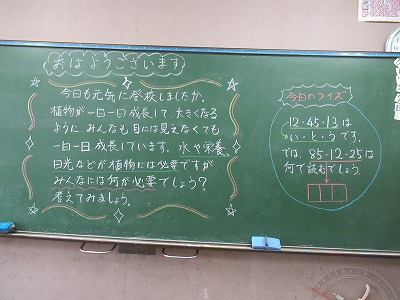 おはようございます
今日も元気に登校しましたか。
植物が一日一日成長して、大きくなる
ように、みんなも目には見えなくても
一日一日成長しています。水や栄養、
日光などが植物には必要ですが、
みんなには何が必要でしょう？
考えてみましょう。
今日のクイズ
12・45・13は
い・と・うです。
では、85・12・25は
何て読むでしょう。